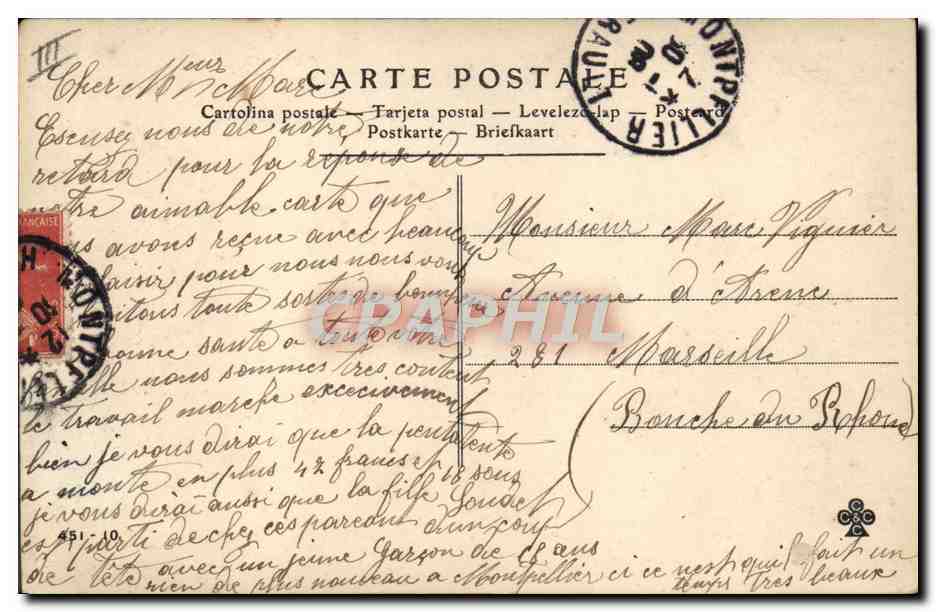 III
Cher Mieur Marc
CARTE POSTALE
Cartolina postale — Tarjeta postal — Levelező-lap — Postcard
Postkarte — Briefkaart
MONTPELLIER HERAULT
Escusez nous de notre
retard pour la réponse de
votre aimable carte que
nous avons reçue avec beaucoup
plaisir pour nous nous vous
toute sorte de
bonne santé a toute votre
nous sommes tres content
le travail marche excecivement
bien je vous dirai que la
a monté en plus 42 francs et 18 sous
je vous dirai aussi que la fille
est parti de chez ces parean d'un coup
de tête avec un jeune garçon de 18 ans
rien de plus nouveau a Montpellier ci ce n'est qu'il fait un
temps tres beaux
FRANÇAISE
MONTPELLIER
Monsieur Marc Viguier
Avenue d'Arenc
281 Marseille
(Bouche du Rhone)
CRAPHIL
451-10
CCCC